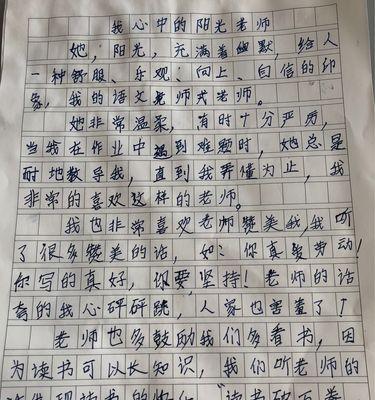 我心中的阳光老师
她,阳光,充满着幽默,给人
一种舒服、乐观、向上、自信的印
象,我的语文老师弍老师。
她非常温柔,有时十分严厉,
当我在作业中遇到难题时,她总是
耐地教导我,直到我弄懂为止,我
非常的喜欢这样的老师。
我也非常喜欢老师赞美我,我听
了很多赞美的话,如:你真爱劳动!
你写的真好,你要坚持!老师的话
夸的我心砰砰跳,人家也害羞了!
老师也多鼓励我们多看书,因
为读书可以长知识,我们听老师的
读书的 “读书破万卷